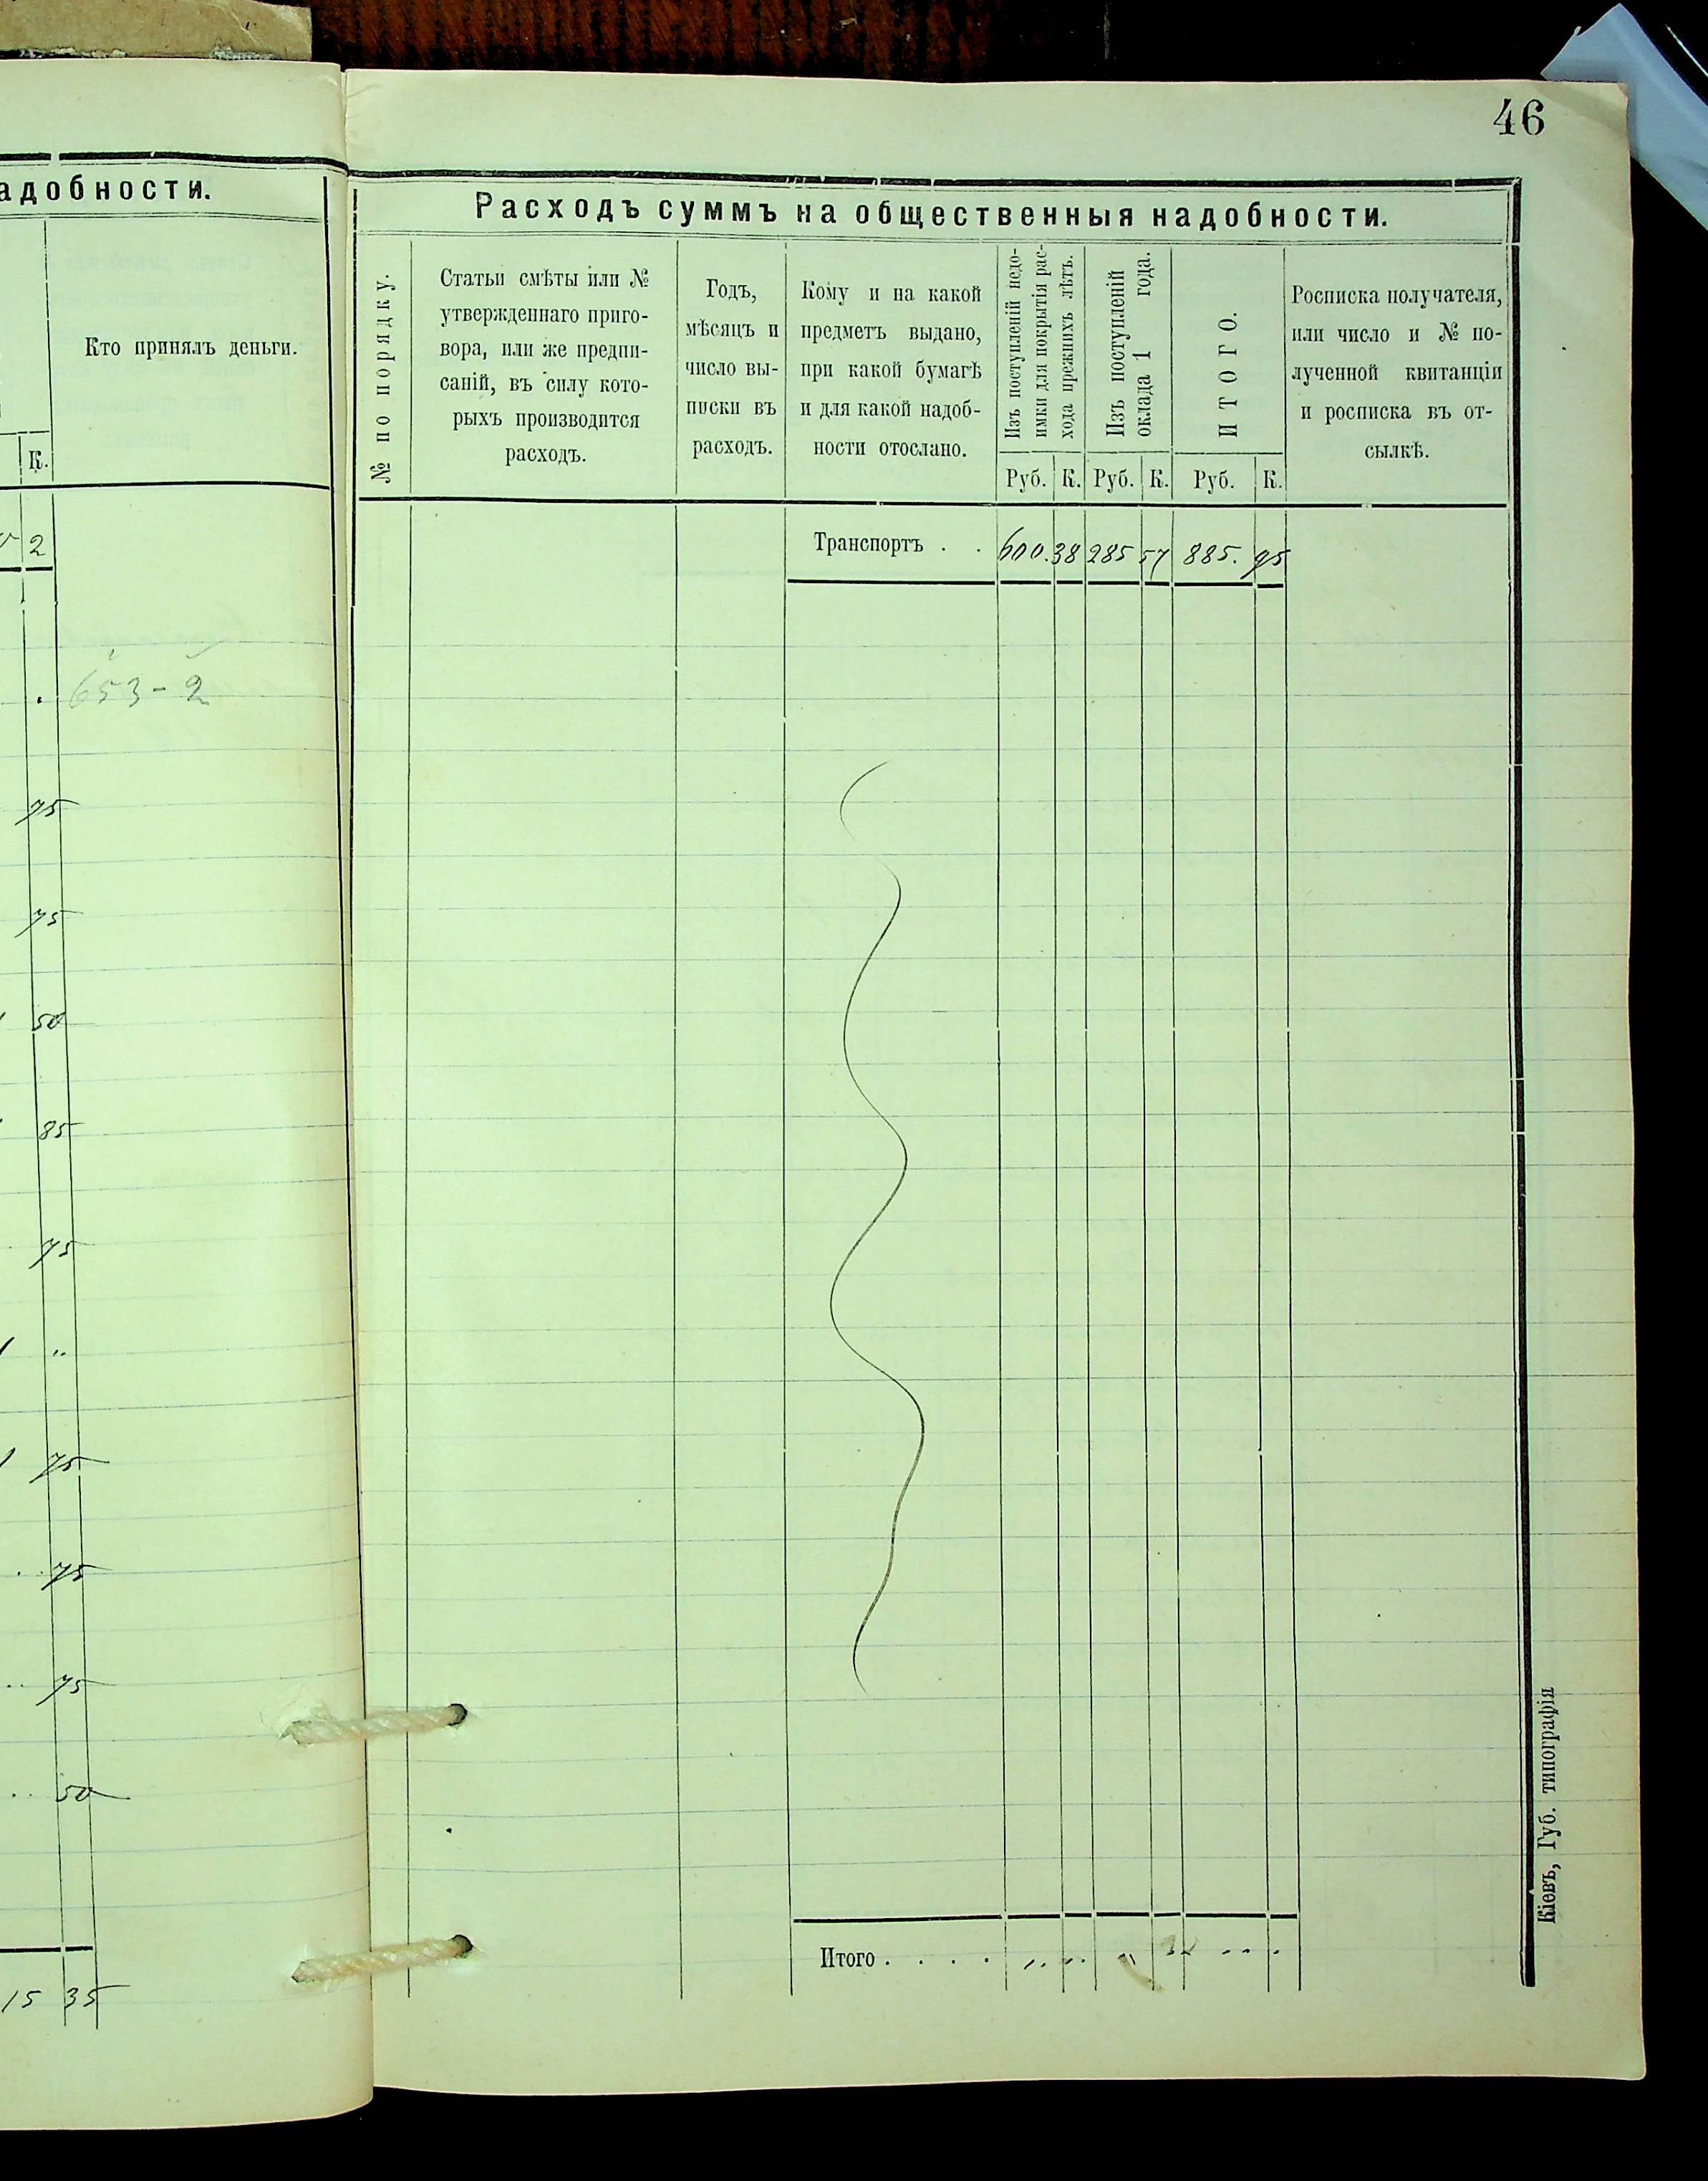 адобности.
Кто принялъ деньги.
К.
2
653-2
75
75
50
85
75
"
75
75
75
50
15 35
46
Расходъ суммъ на общественныя надобности.
№ по порядку.
Статьи смѣты или №
утвержденнаго приго-
вора, или же предпи-
саній, въ силу кото-
рыхъ производится
расходъ.
Годъ,
мѣсяцъ и
число вы-
писки въ
расходъ.
Кому и на какой
предметъ выдано,
при какой бумагѣ
и для какой надоб-
ности отослано.
Изъ поступленій недо-
имки для покрытія рас-
хода прежнихъ лѣтъ.
Изъ поступленій
оклада 1 года.
ИТОГО.
Росписка получателя,
или число и № по-
лученной квитанціи
и росписка въ от-
сылкѣ.
Руб. К. Руб. К. Руб. К.
Транспортъ . . 600. 38 285 57 885. 95
Итого . . . .
Кіевъ, Губ. типографія